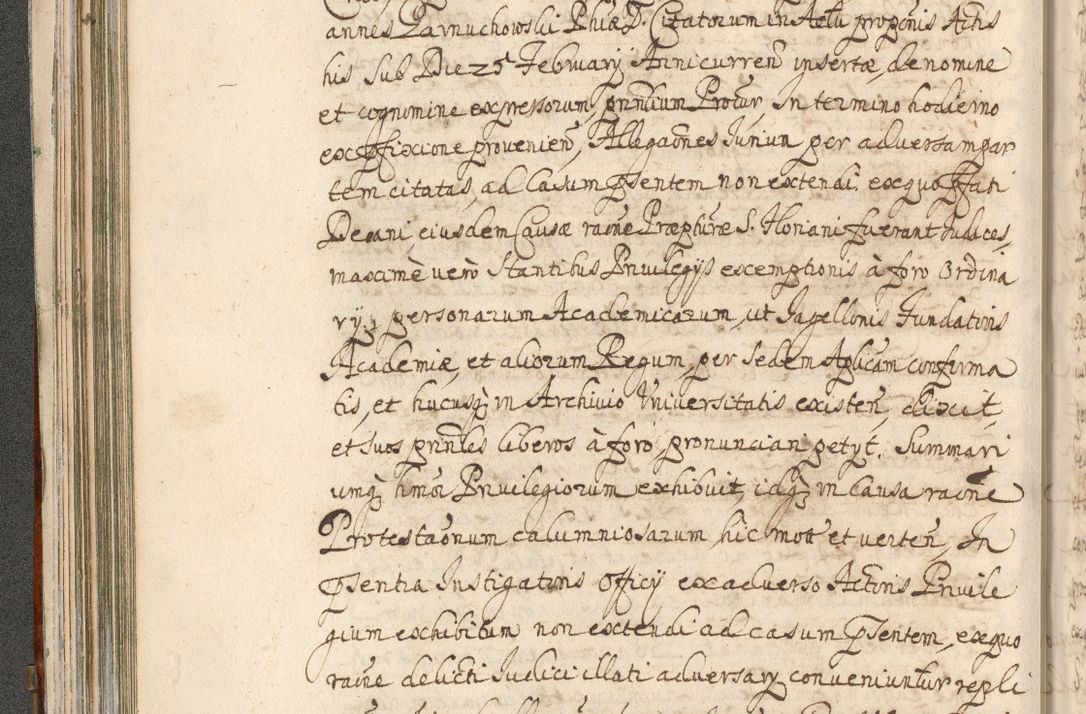 annes Zarnuchowski Phiæ D. Citatorum in Actu propoñis Actis
his sub Die 25 February Anni curreñ insertæ, de nomine
et cognomine expressorum, prinālium Procur In termino hodierno
ex prōfixione provenieñ, Allegaōnes Junium per adversam par
tem citatas, ad Casum pntem non extendi. ex quo pfati
Decani, eiusdem Causæ raōne Præpturæ S. Floriani fuerant Judices,
maximè verò stantibus Privilegijs exemptionis à foro Ordina
rij personarum Academicarum, ut Jagellonis Fundatoris
Academiæ, et aliorum Regum, per Sedem Aplicam confirma
tis, et hucusq in Archivio Universitatis existeñ, dixit,
et suos prinles liberos à foro pronunciari petyt. Summari
umq hmōi Privilegiorum exhibuit, idq in Causa raōne
Protestaōnum calumniosarum, hic mott et verteñ, In
pntia Instigatoris Officij ex adverso Actoris Privile
gium exhibitum non extendi ad casum pntem, ex quo
raōne delicti Judici illati adversary conveniuntur repli